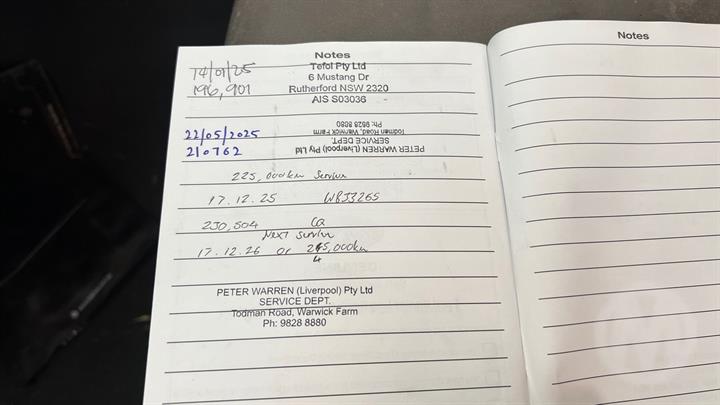 Notes
14/01/25
Tefol Pty Ltd
6 Mustang Dr
196,901
Rutherford NSW 2320
AIS S03036
22/05/2025
210762
PETER WARREN (Liverpool) Pty Ltd
SERVICE DEPT.
Todman Road, Warwick Farm
Ph: 9828 8880
225,000km Service
17.12.25 WBJ3265
230,504 Ca
Next Service
17.12.26 or 245,000km
4
PETER WARREN (Liverpool) Pty Ltd
SERVICE DEPT.
Todman Road, Warwick Farm
Ph: 9828 8880
Notes